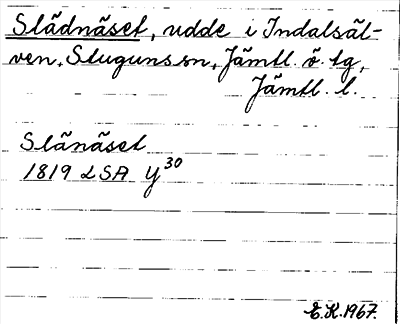 Slädnäset, udde i Indalsäl-
ven, Stuguns sn, Jämtl. ö. tg,
Jämtl. l.
Slänäset
1819 LSA Y³⁰
E.K. 1967.